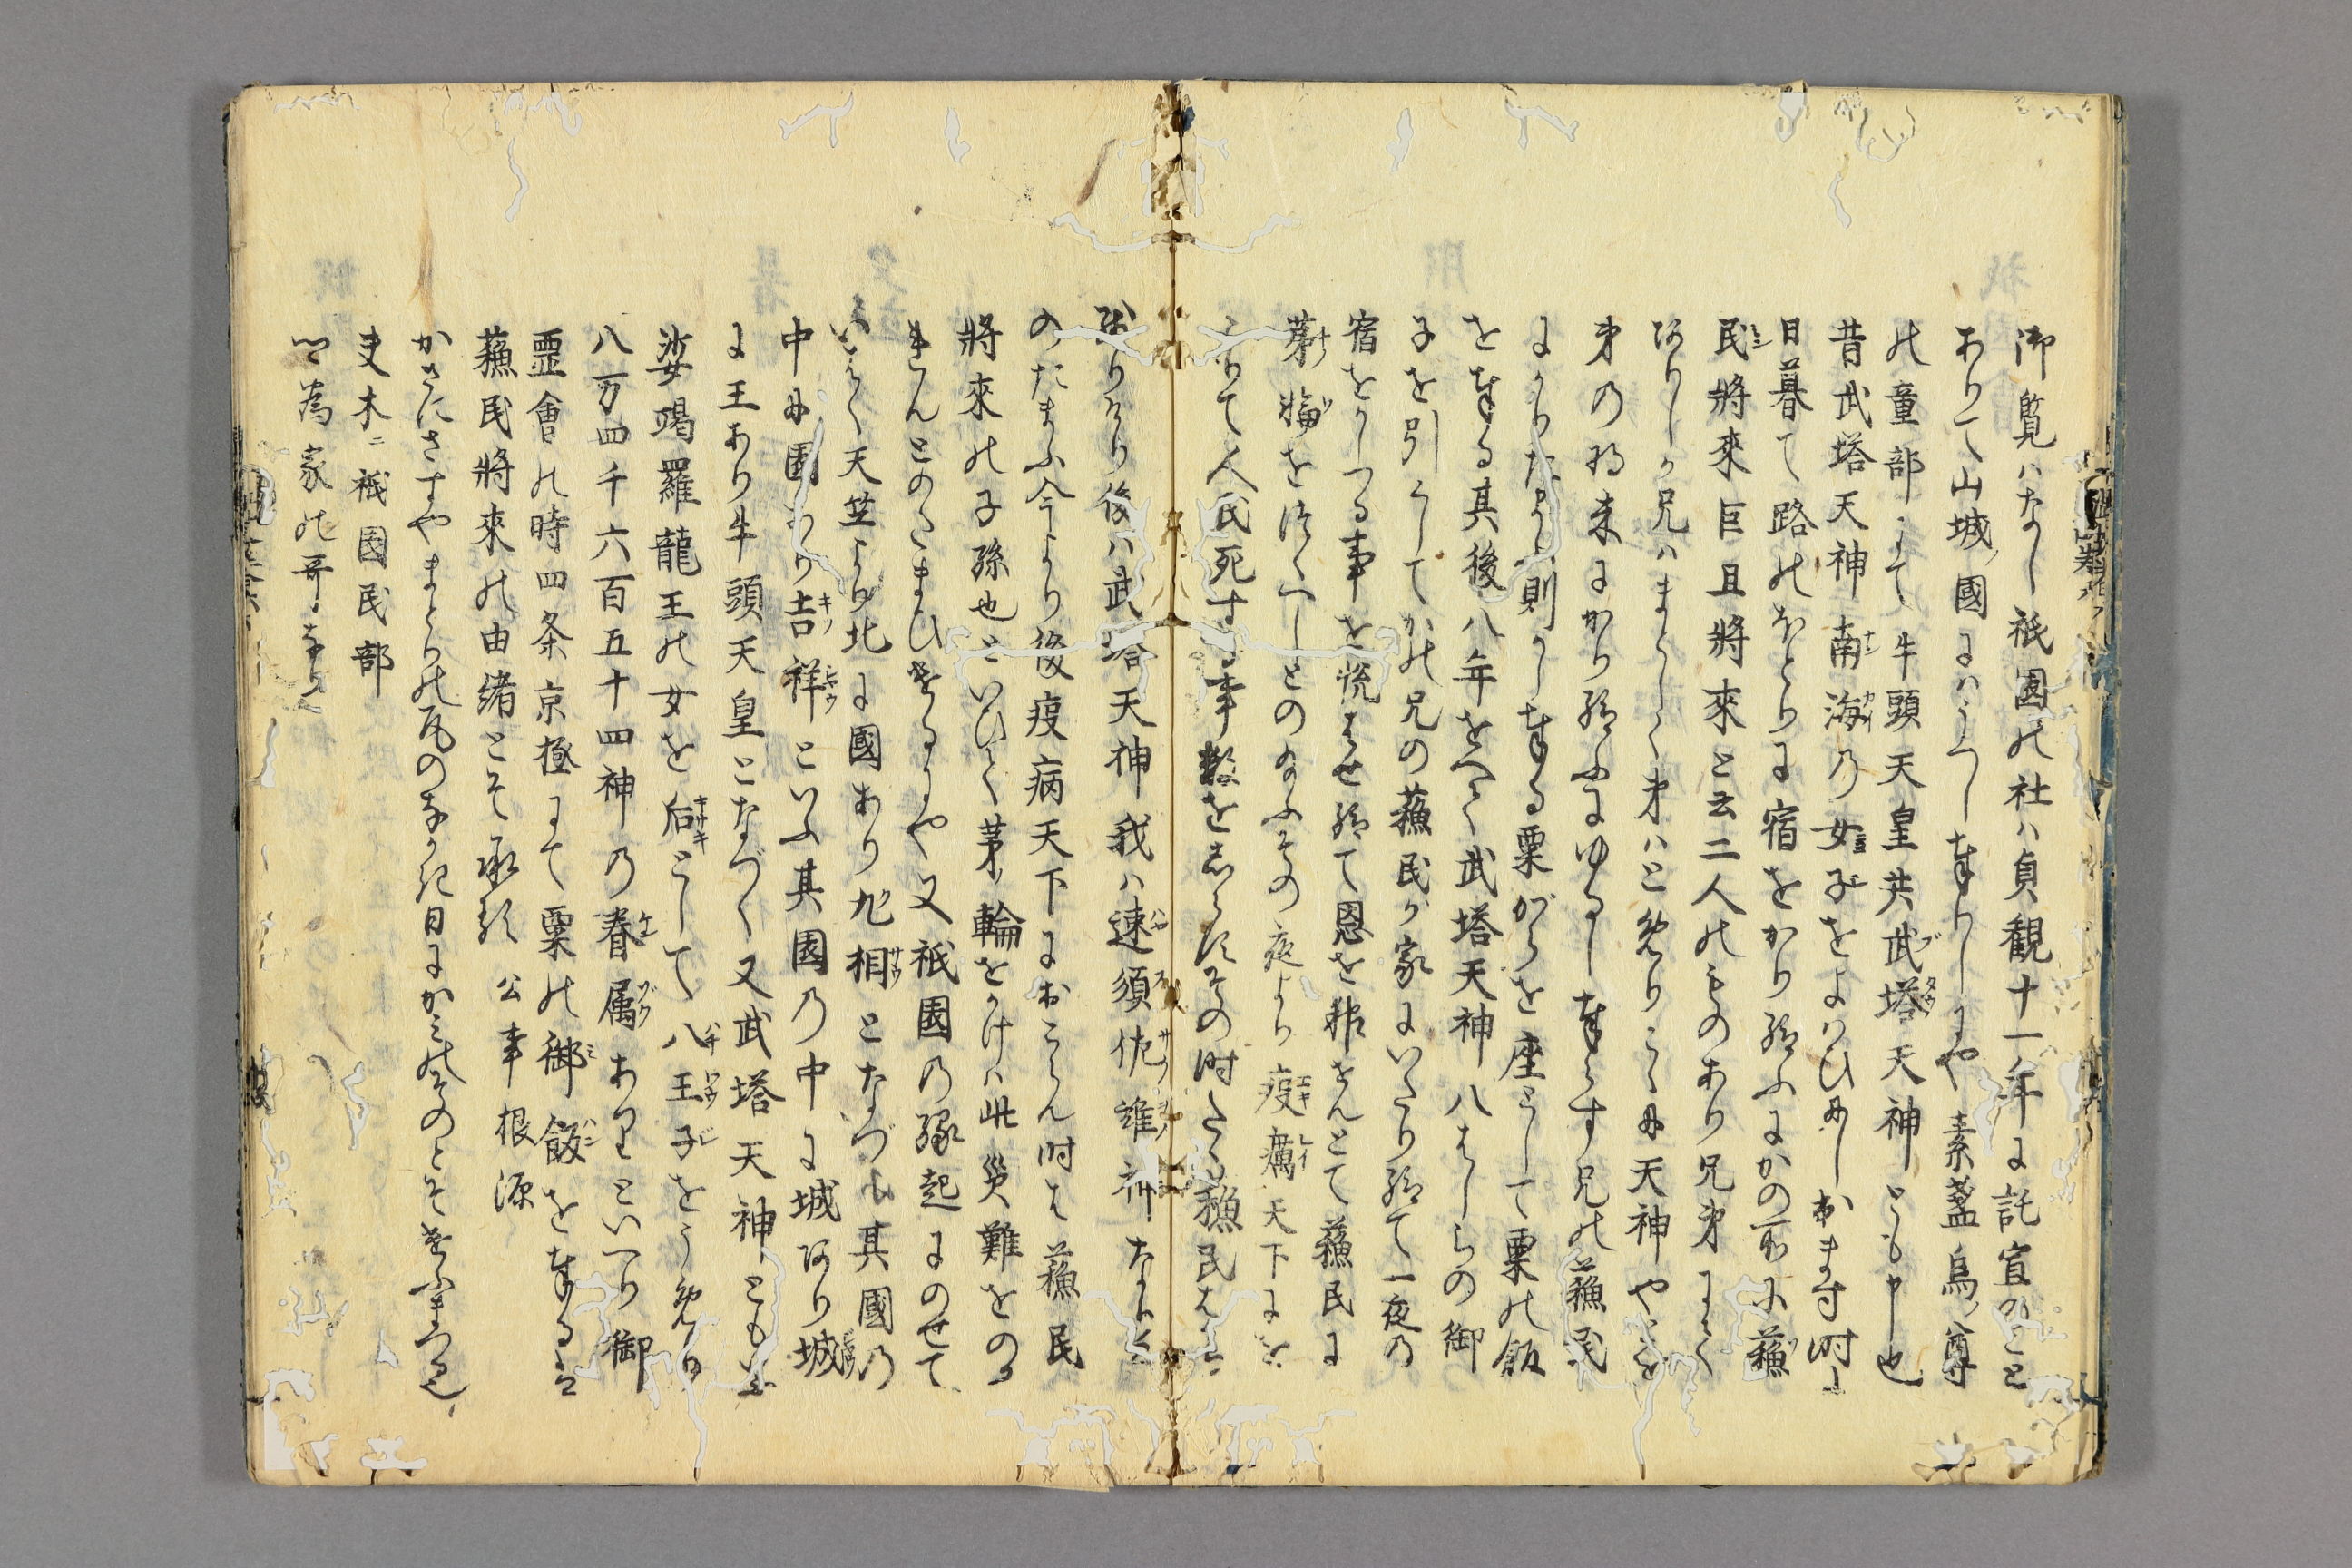 御覧ハなし祇園の社ハ貞観十一年に託宣のこと
ありて山城ノ國にハうつし奉りしにや素盞烏ノ尊
の童部にて牛頭天皇共武塔天神とも申し也
昔武塔天神南海の女子をよハひにしおます時に
日暮て路のほとりに宿をかり給ふにかの所に蘓
民將來巨且將來と云二人のものあり兄弟にて
ありしか兄ハまつしく弟ハとめりこゝに天神やとを
弟の将来にかり給ふにゆるし奉らす兄の蘓民
にかり給ふ則かし奉る粟がらを座として粟の飯
を奉る其後八年をへて武塔天神八はしらの御
子を引くしてかの兄の蘓民が家にいたり給て一夜の
宿をかしつる事を悦はせ給て恩を報せんとて蘓民に
茅ノ輪をつくへしとの給ふその夜より疫癘天下に
をこりて人民死す事数をしらすその時たゝ蘓民はか
残りけり後ハ武塔天神我ハ速須佐雄神なりと
のたまふ今より後疫病天下におこらん時は蘓民
將來の子孫也といひて茅ノ輪をかけハ此災難をのか
れんとのたまひけるにや又祇園の縁起にのせて
いはく天竺より北に國あり九相となづく其國の
中に園あり吉祥といふ其園の中に城あり城
に王あり牛頭天皇となづく又武塔天神ともいふ
娑竭羅龍王の女を后として八王子をうめり
八万四千六百五十四神の眷属ありといへり御
霊會の時四条京極にて粟の御飯を奉るは
蘓民將來の由緒とそ承る　公事根源
かさにさすやまとりの尾のなかき日にかみのそのとそけふまつる也
夫木ニ祇園民部
卿為家の哥なり